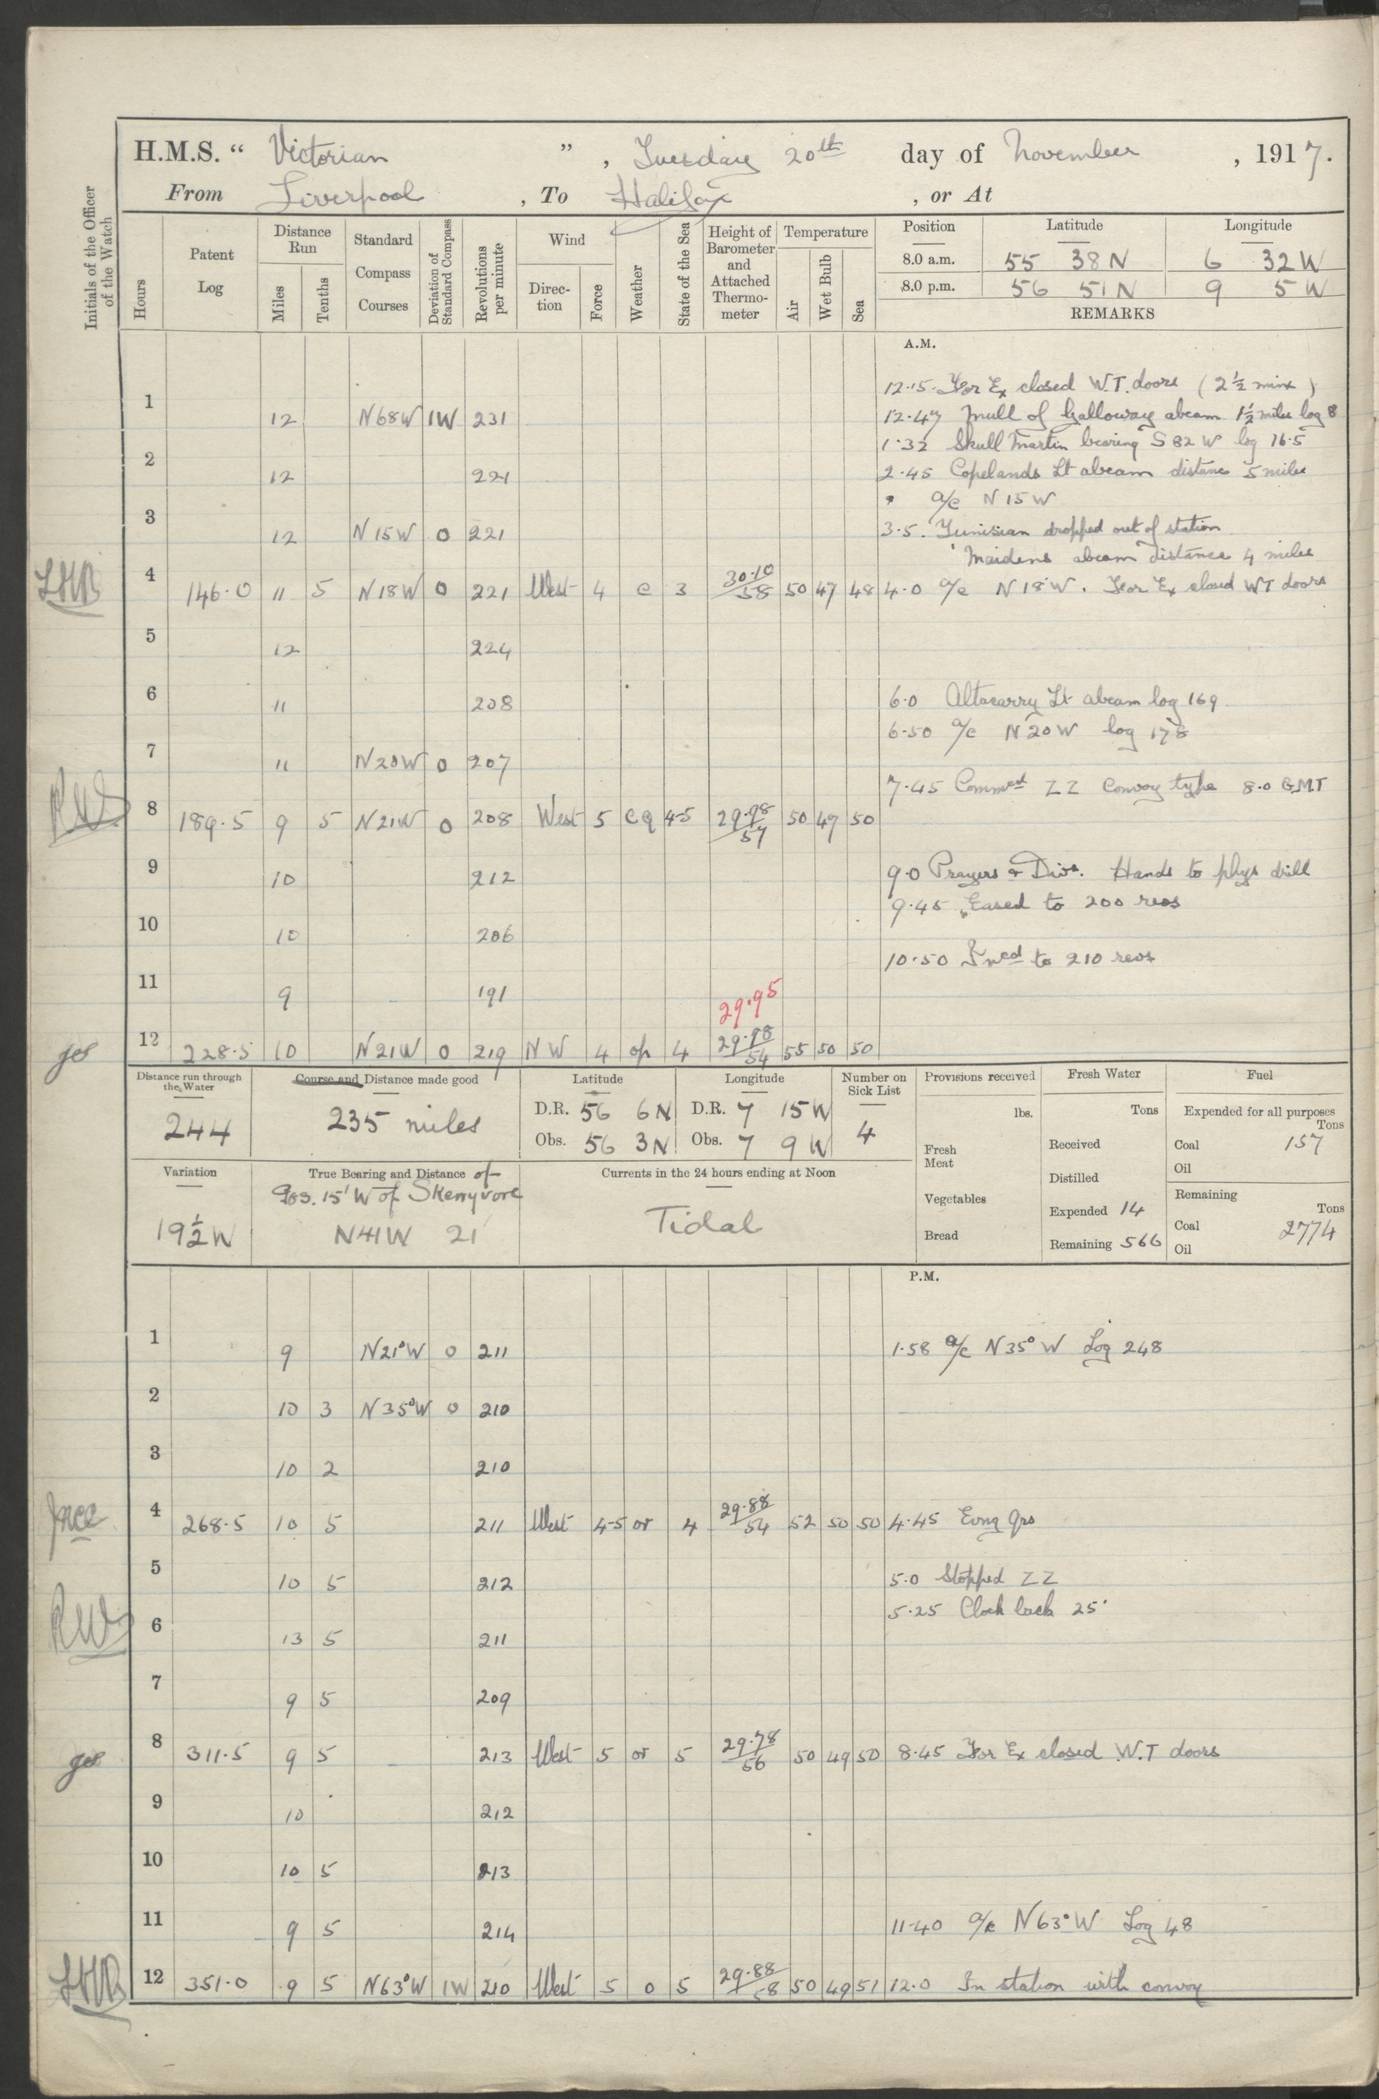 H.M.S. " Victorian " , Tuesday 20th day of November , 1917.
From Liverpool , To Halifax , or At
Initials of the Officer of the Watch
Hours
Patent Log
Distance Run
Miles
Tenths
Standard Compass Courses
Deviation of Standard Compass
Revolutions per minute
Wind
Direc-tion
Force
Weather
State of the Sea
Height of Barometer and Attached Thermo-meter
Temperature
Air
Wet Bulb
Sea
Position Latitude Longitude
8.0 a.m. 55 38 N 6 32 W
8.0 p.m. 56 51 N 9 5 W
REMARKS
A.M.
12.15. For Ex closed W.T. doors (2½ mins)
1 12 N68W 1W 231 12.47 Mull of Galloway abeam 1½ miles log 8
1.32 Skull Martin bearing S 82 W log 16.5
2 12 221 2.45 Copelands Lt abeam distance 5 miles
" a/c N 15 W
3 12 N15W 0 221 3.5. Tunisian dropped out of station
Maidens abeam distance 4 miles
LHB 4 146.0 11 5 N18W 0 221 West 4 c 3 30.10/58 50 47 48 4.0 a/c N 18 W. For Ex closed WT doors
5 12 224
6 11 208 6.0 Altacarry Lt abeam log 169
6.50 a/c N 20 W log 178
7 11 N20W 0 207
7.45 Commed ZZ Convoy type 8.0 G.M.T
RW 8 189.5 9 5 N21W 0 208 West 5 cq 4-5 29.98/57 50 49 50
9 10 212 9.0 Prayers & Divs. Hands to phys drill
9.45 Eased to 200 revs
10 10 206
10.50 Inced to 210 revs
11 9 191
29.95
12 228.5 10 N21W 0 219 NW 4 op 4 29.98/54 55 50 50
Distance run through the Water
244
Course and Distance made good
235 miles
Latitude
D.R. 56 6 N
Obs. 56 3 N
Longitude
D.R. 7 15 W
Obs. 7 9 W
Number on Sick List
4
Provisions received
lbs.
Fresh Meat
Vegetables
Bread
Fresh Water
Tons
Received
Distilled
Expended 14
Remaining 566
Fuel
Expended for all purposes
Tons
Coal 157
Oil
Remaining
Tons
Coal 2774
Oil
Variation
19½ W
True Bearing and Distance of
Pos. 15' W of Skerryvore
N41W 21'
Currents in the 24 hours ending at Noon
Tidal
P.M.
1 9 N21°W 0 211 1.58 a/c N35°W Log 248
2 10 3 N35°W 0 210
3 10 2 210
4 268.5 10 5 211 West 4-5 or 4 29.88/54 52 50 50 4.45 Evng Qrs
5 10 5 212 5.0 Stopped ZZ
5.25 Clock back 25'
RW 6 13 5 211
7 9 5 209
8 311.5 9 5 213 West 5 or 5 29.78/56 50 49 50 8.45 For Ex closed W.T doors
9 10 212
10 10 5 213
11 9 5 214 11.40 a/c N63°W Log 48
LHB 12 351.0 9 5 N63°W 1W 210 West 5 o 5 29.88/58 50 49 51 12.0 In station with convoy